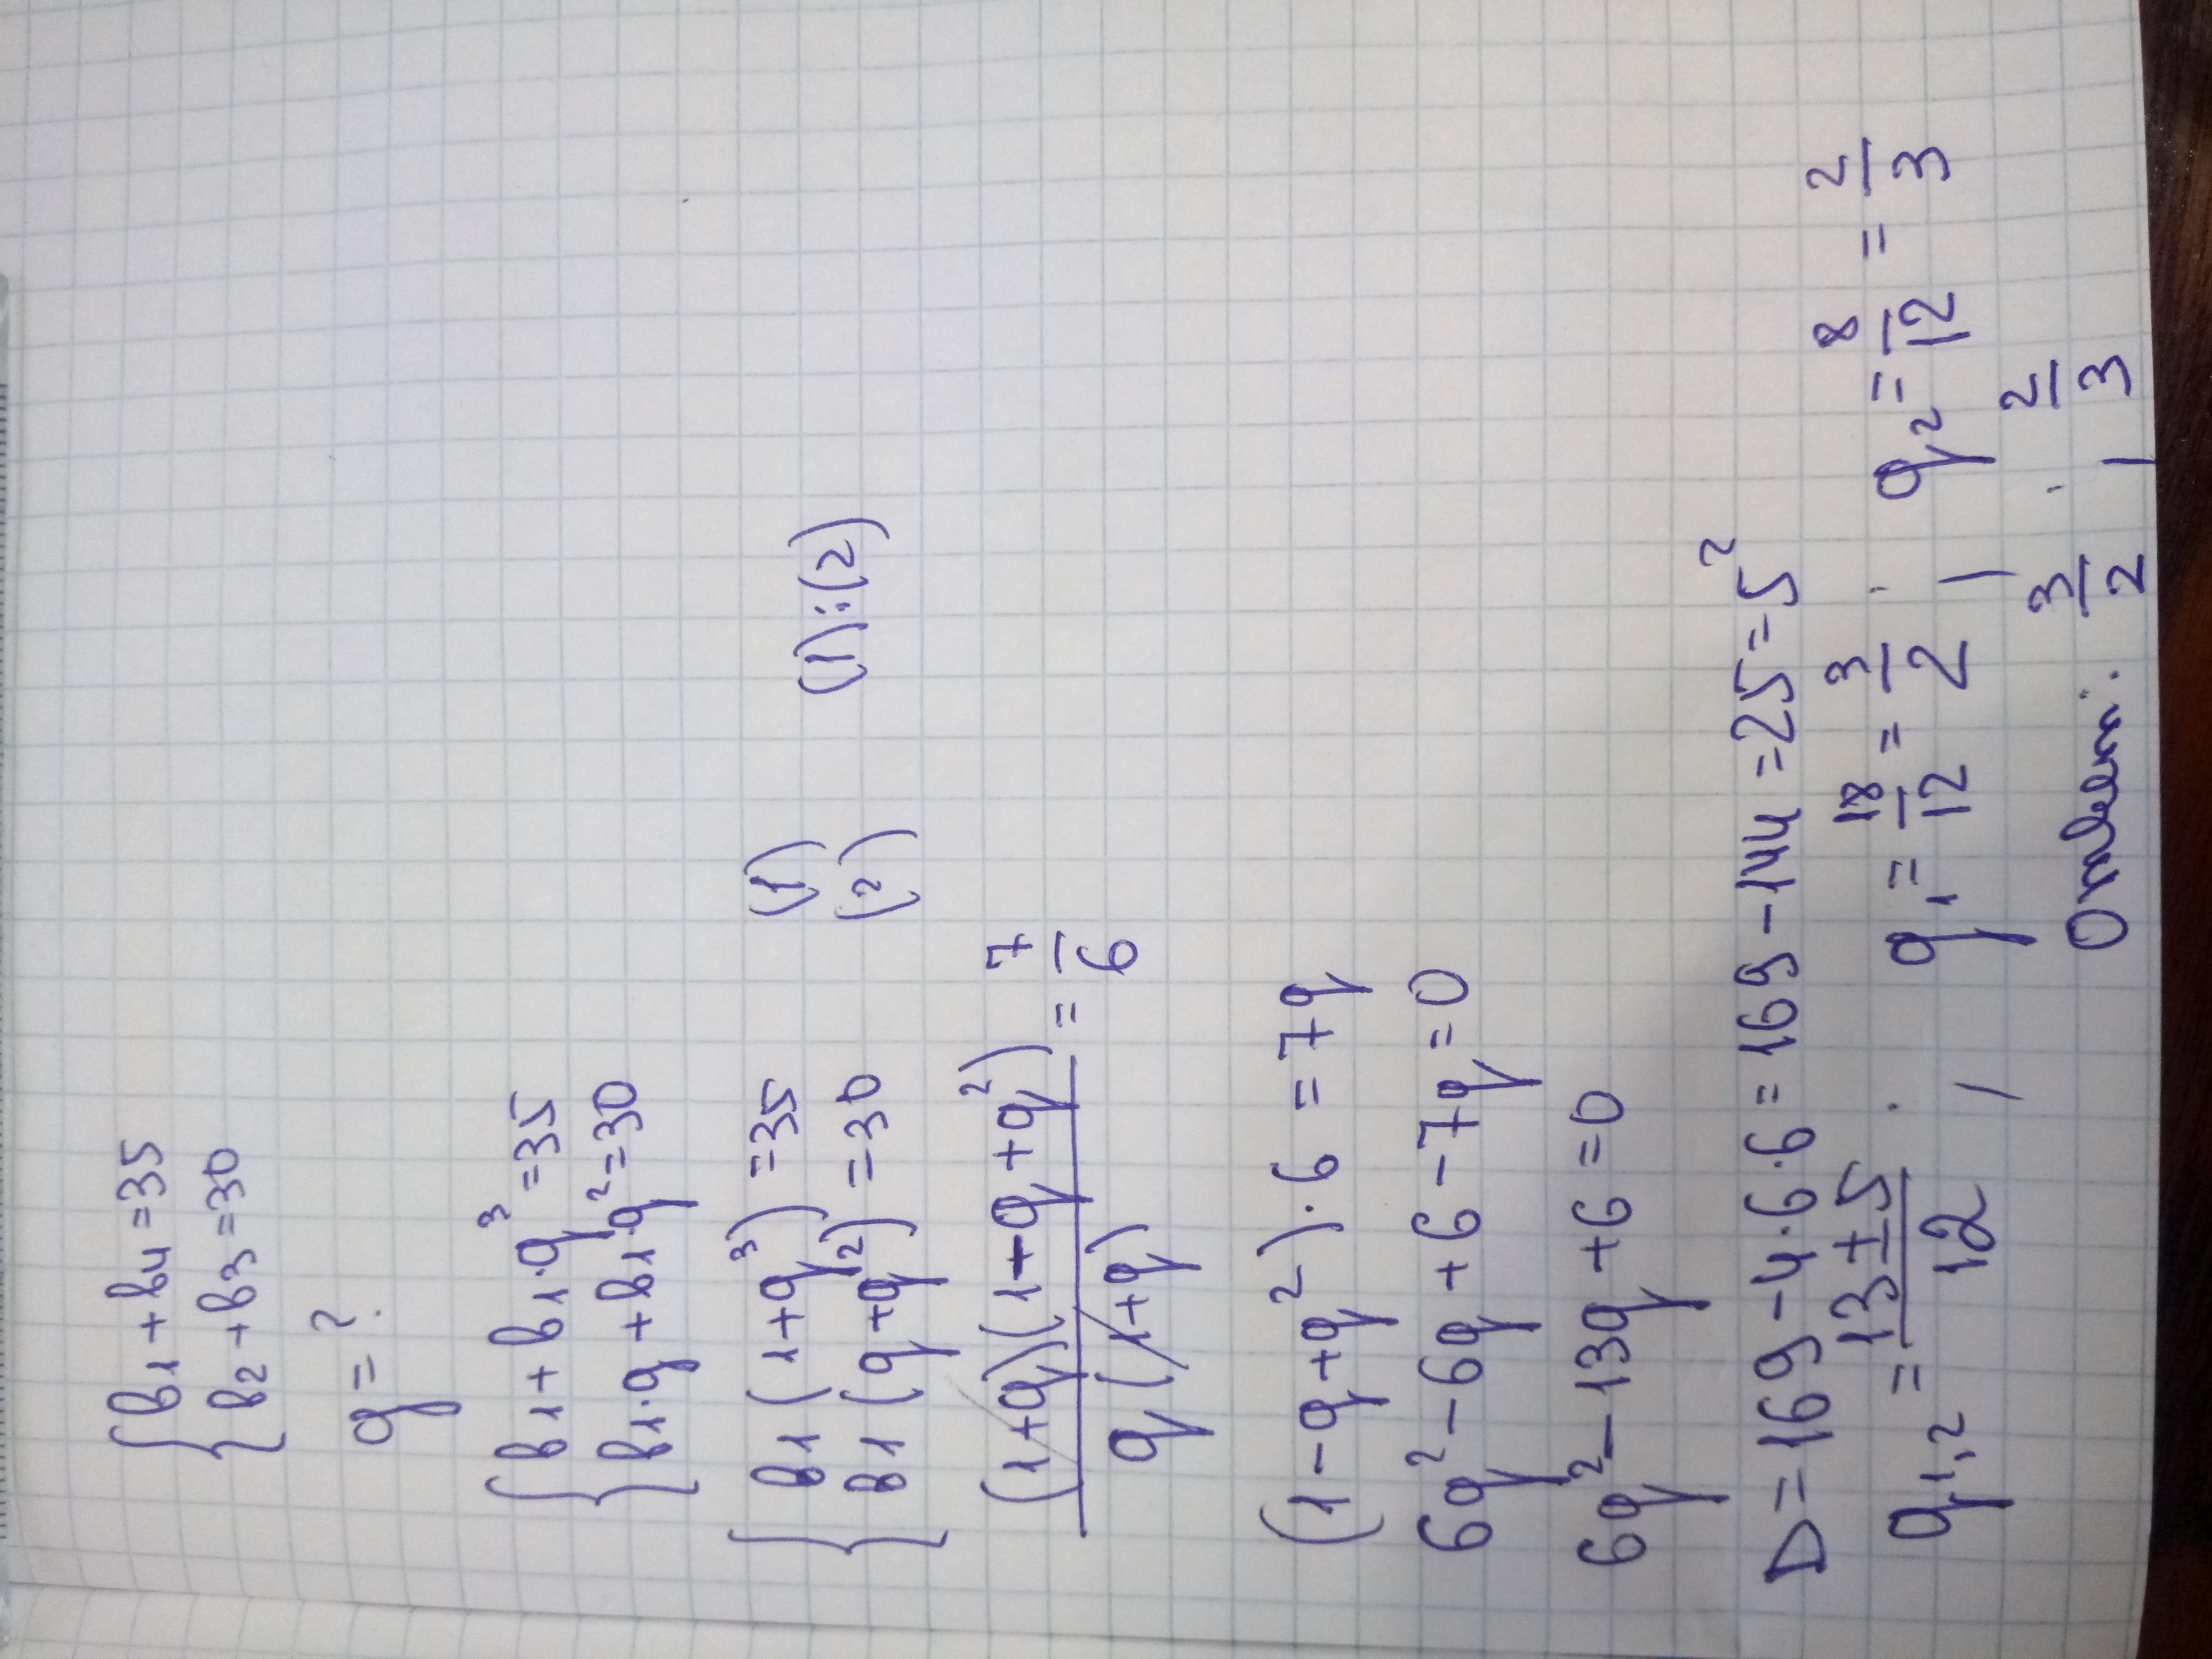 { в₁ + в₄ = 35
{ в₂ + в₃ = 30
q = ?
{ в₁ + в₁·q³ = 35
{ в₁·q + в₁·q² = 30
{ в₁ (1+q³) = 35 (1)
{ в₁ (q+q²) = 30 (2) (1):(2)
(1+q)(1-q+q²) / q(1+q) = 7/6
(1-q+q²)·6 = 7q
6q² - 6q + 6 - 7q = 0
6q² - 13q + 6 = 0
D = 169 - 4·6·6 = 169 - 144 = 25 = 5²
q₁,₂ = (13±5)/12 ; q₁ = 18/12 = 3/2 ; q₂ = 8/12 = 2/3
Ответ: 3/2 ; 2/3